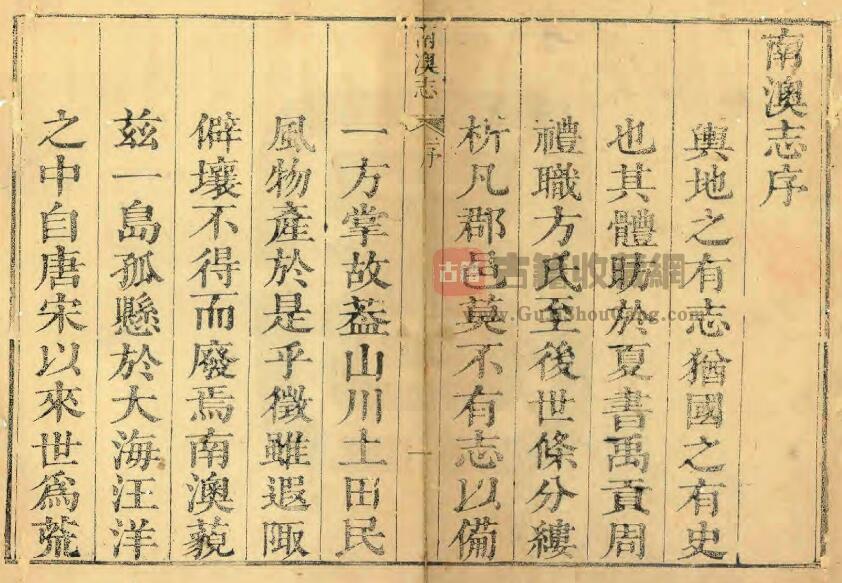 南澳志序
輿地之有志猶國之有史
也其體昉於夏書禹貢周
禮職方氏至後世條分縷
析凡郡邑莫不有志以備
南澳志
序
一
一方掌故蓋山川土田民
風物產於是乎徵雖遐陬
僻壤不得而廢焉南澳藐
茲一島孤懸於大海汪洋
之中自唐宋以來世爲荒
古籍
古籍收藏網
www.GuJiShouCang.com